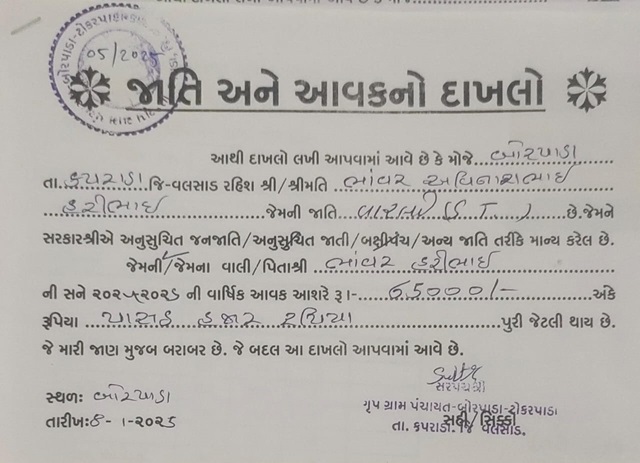 05/2025
જાતિ અને આવકનો દાખલો
આથી દાખલો લખી આપવામાં આવે છે કે મોજે બોરપાડા
તા. કપરાડા જિ-વલસાડ રહિશ શ્રી/શ્રીમતિ ભાવર અવિનાશભાઈ
હરીભાઈ જેમની જાતિ વારલી (S.T.) છે.જેમને
સરકારશ્રીએ અનુસુચિત જનજાતિ/અનુસુચિત જાતી/બક્ષીપંચ/અન્ય જાતિ તરીકે માન્ય કરેલ છે.
જેમની/જેમના વાલી/પિતાશ્રી ભાવર હરીભાઈ
ની સને ની વાર્ષિક આવક આશરે રૂા.- 65000/- અંકે
રૂપિયા પાસઠ હજાર રૂપિયા પુરી જેટલી થાય છે.
જે મારી જાણ મુજબ બરાબર છે. જે બદલ આ દાખલો આપવામાં આવે છે.
સ્થળ: બોરપાડા
તારીખ: 8-1-૨૦૨૬
સરપંચશ્રી
ગૃપ ગ્રામ પંચાયત-બોરપાડા-ટોકરપાડા
સહી/સિક્કો
તા. કપરાડા. જિ વલસાડ.